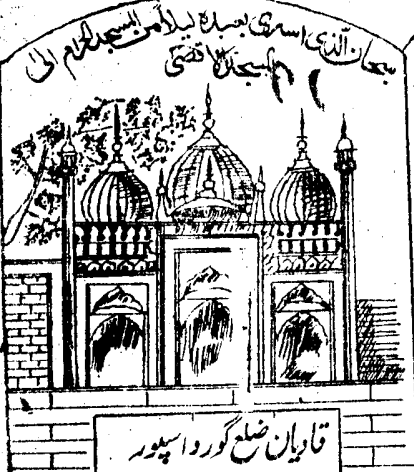 سبحان الذی اسری بعبدہ لیلا من المسجد الحرام الی
المسجد الاقصی
قادیان ضلع گورداسپور